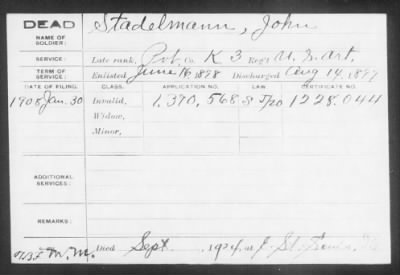 DEAD
NAME OF SOLDIER:
Stadelmann, John
SERVICE:
Late rank, Pvt, Co. K 3 Reg't U.S. Art,
TERM OF SERVICE:
Enlisted June 1898 Discharged Aug 14, 1899
DATE OF FILING. CLASS. APPLICATION NO. CERTIFICATE NO.
1908 Jan. 30 Invalid, 1,370,568 1228.044
Widow,
Minor,
ADDITIONAL SERVICES:
REMARKS:
M.M. Died Sept , 1924, at E. St. Louis, Ill